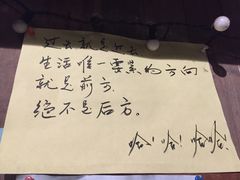 过去就是过去
生活唯一要累的方向
就是前方.
绝不是后方。
哈! 哈! 哈哈.